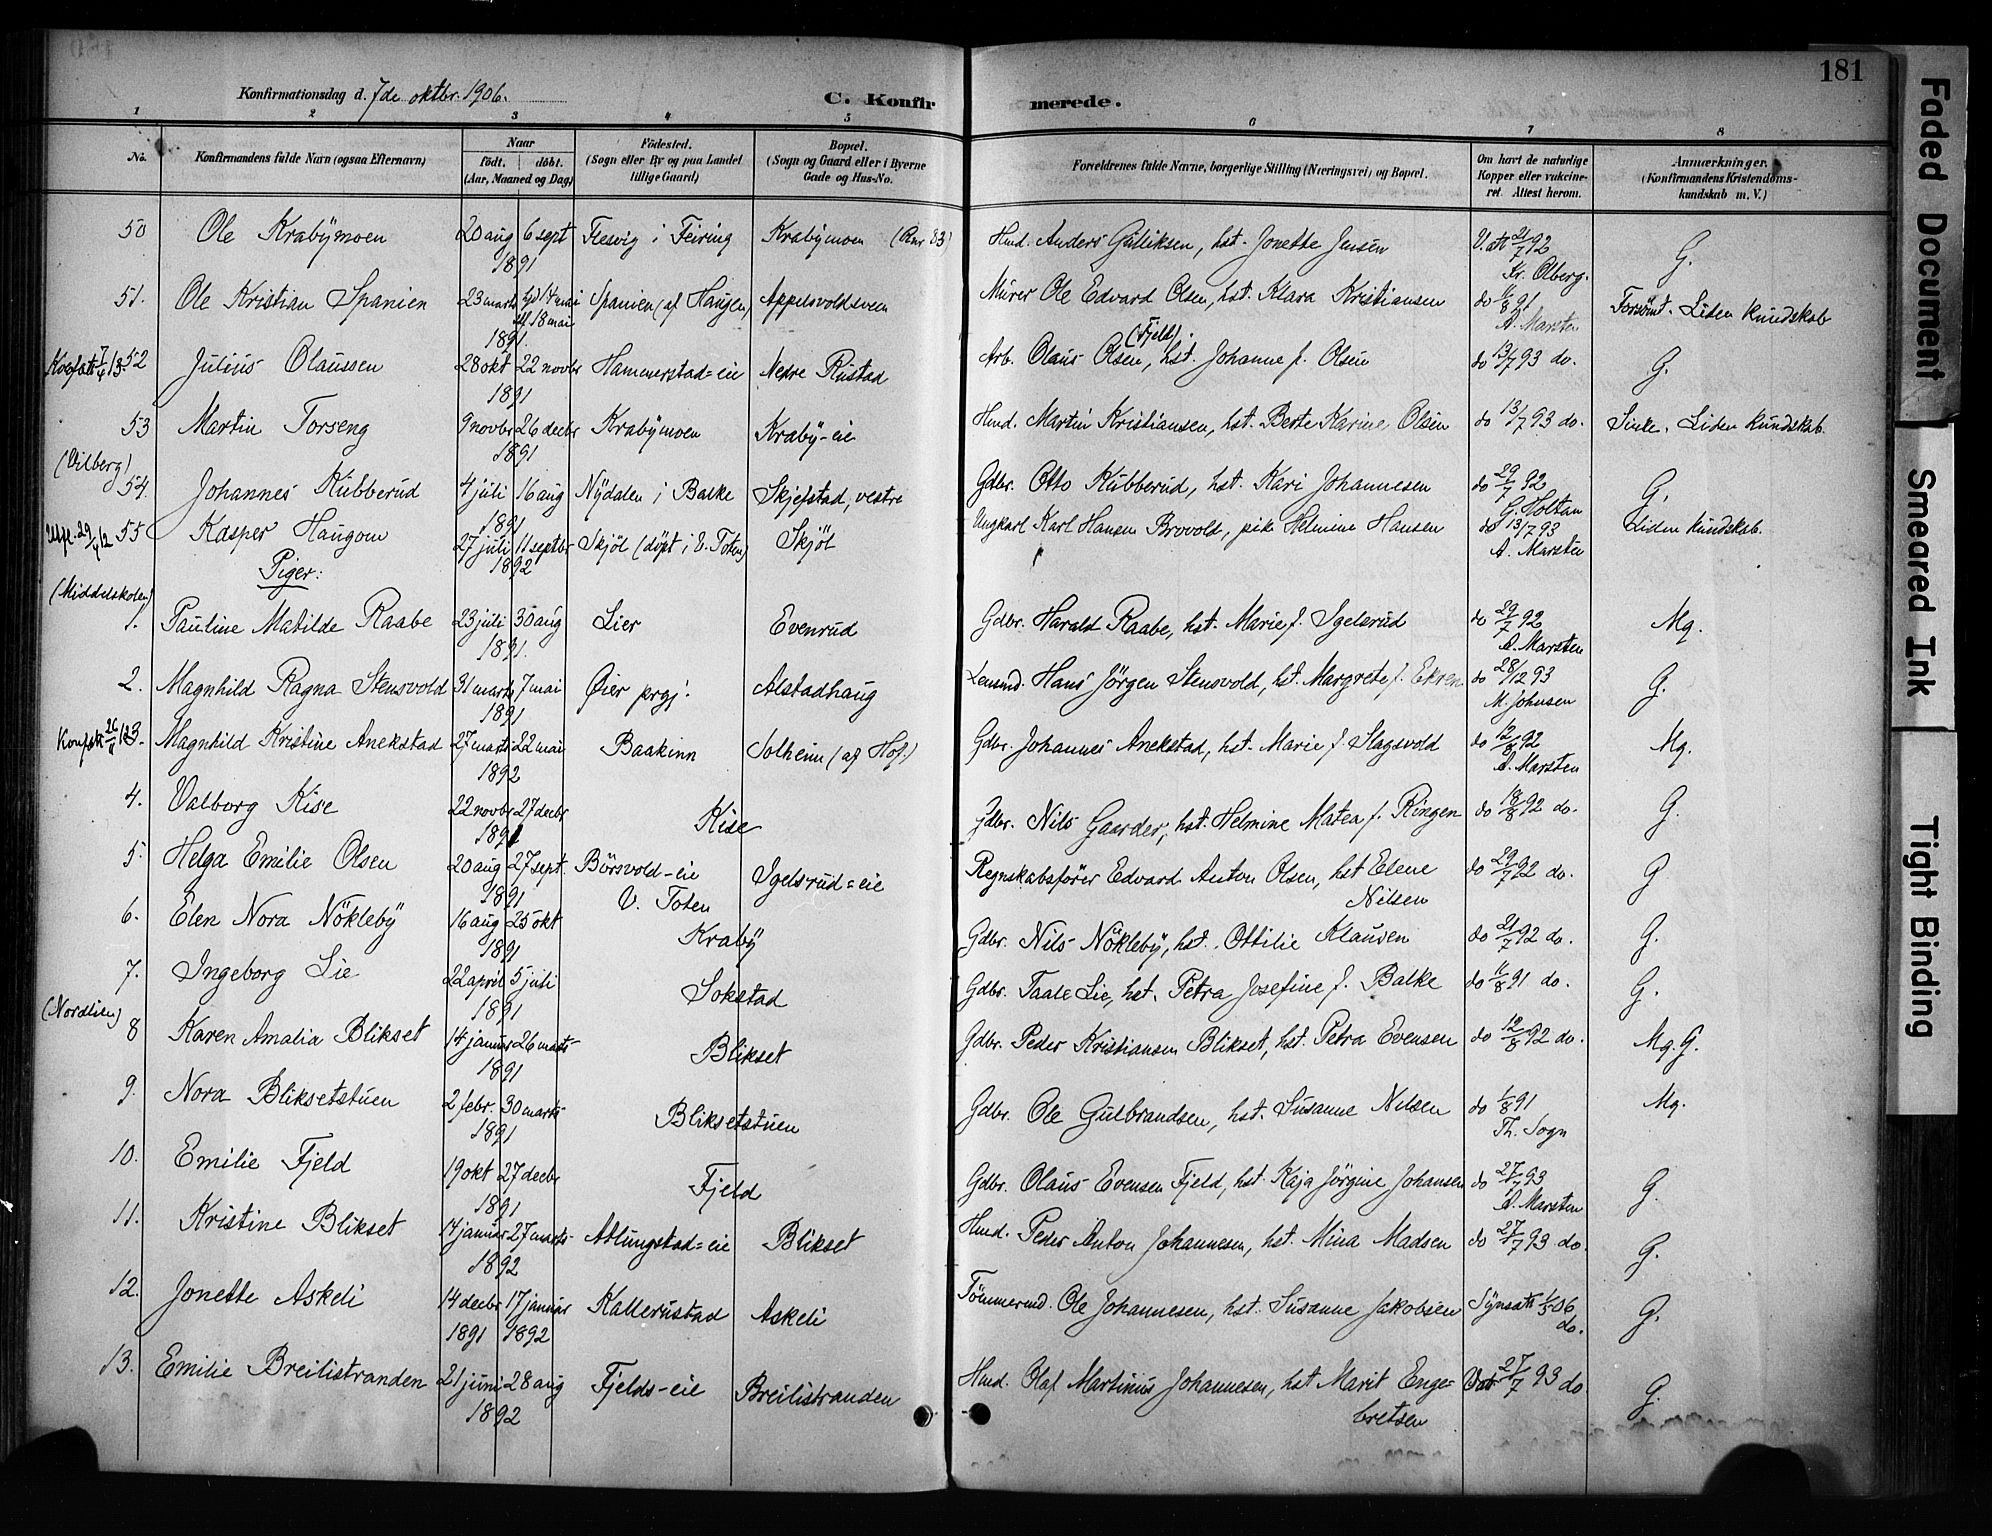 181
Konfirmationsdag d. 7de oktbr. 1906.
C. Konfirmerede.
1 2 3 4 5 6 7 8
No. Konfirmandens fulde Navn (ogsaa Efternavn) Naar födt. döbt. (Aar, Maaned og Dag) Födested. (Sogn eller By og paa Landet tillige Gaard) Bopæl. (Sogn og Gaard eller i Byerne Gade og Hus-No. Forældrenes fulde Navne, borgerlige Stilling (Næringsvei) og Bopæl. Om havt de naturlige Kopper eller vakcineret Attest herom. Anmærkninger. (Konfirmandens Kristendomskundskab m. V.)
50 Ole Krabÿmoen 20 aug 6 sept 1891 Flesvig i Feiring Krabÿmoen (Bnr 83) Hmd. Anders Gulliksen, hst. Jonette Jensen V.att 21/7 92 Kr. Olberg. G.
51. Ole Kristian Spanien 23 marts 14 mai 18 mai 1891 Spanien (af Haugen) Appelsvoldsveen Murer Ole Edvard Olsen, hst. Klara Kristiansen do 11/8 91 A. Marsten Forsömt. Liden kundskab
Konfatt 7/4 13 52 Julius Olaussen 28 okt 22 novbr 1891 Hammerstad=eie Nedre Rustad Arb. Olaus Olsen (Fjeld), hst. Johanne f. Olsen do 13/7 93 do. G.
53 Martin Torseng 9 novbr 26 decbr 1891 Krabÿmoen Kraby-eie Hmd. Martin Kristiansen, hst. Berte Karine Olsen do 13/7 93 do. Sinke. Liden kundskab.
(Vilberg)
54. Johannes Kubberud 4 juli 16 aug 1891 Nÿdalen i Balke Skjefstad, vestre Gdbr. Otto Kubberud, hst. Kari Johannesen do 29/7 92 G. Holtan G.
29/4 12 55 Kasper Haugom 27 juli 11 septbr 1892 Skjöl (döpt i V. Toten) Skjöl Ungkarl Karl Hansen Brovold, pik Helmine Hansen do 13/7 93 A. Marsten Liden kundskab.
Piger:
(Middelskolen)
1. Pauline Matilde Raabe 23 juli 30 aug 1891. Lier Evenrud Gdbr. Harald Raabe, hst. Marie f. Igelsrud do 29/7 92 A. Marsten Mg.
2. Magnhild Ragna Stensvold 31 marts 7 mai 1891 Øier prgj. Alstadhaug Lensmd. Hans Jörgen Stensvold, hst. Margrete f. Ekren do 28/12 93 M. Johnsen G.
Konfatt 26/4 123. Magnhild Kristine Anekstad 27 marts 22 mai 1892 Baakinn Solheim (af Hof.) Gdbr. Johannes Anekstad, hst. Marie f. Slagsvold do 12/8 92 A. Marsten Mg.
4. Valborg Kise 22 novbr 27 decbr 1891 Kise Gdbr. Nils Gaarder, hst. Helmine Matea f. Ringen do 18/8 92 do. G.
5. Helga Emilie Olsen 20 aug 27 sept. 1891 Börsvold-eie V. Toten Igelsrud=eie Regnskabsförer Edvard Anton Olsen, hst Elene Nilsen do 29/7 92 do. G
6. Elen Nora Nöklebÿ 16 aug 25 okt 1891 Krabÿ Gdbr. Nils Nöklebÿ, hst. Ottilie Klausen do 21/7 92 do. G.
7. Ingeborg Lie 22 april 5 juli 1891 Sokstad Gdbr. Taale Lie, hst. Petra Josefine f. Balke do 11/8 91 do. G.
(Nordlien)
8 Karen Amalia Blikset 14 januar 26 marts 1891 Blikset Gdbr. Peder Kristiansen Blikset, hst. Petra Evensen do 12/8 92 do. Mg. G.
9. Nora Bliksetstuen 2 febr. 30 marts 1891 Bliksetstuen Gdbr. Ole Gulbrandsen, hst. Susanne Nilsen do 1/8 91 Th. Sogn Mg.
10. Emilie Fjeld 19 okt 27 decbr 1891 Fjeld Gdbr. Olaus Evensen Fjeld, hst. Kaja Jörgine Johansen do 27/7 93 A. Marsten G.
11. Kristine Blikset 14 januar 27 marts 1892 Ablungstad=eie Blikset Hmd. Peder Anton Johannesen, hst. Mina Madsen do 27/7 93 do. G.
12. Jonette Askeli 14 decbr 1891 17 januar 1892 Kallerustad Askeli Tömmermd. Ole Johannesen, hst. Susanne Jakobsen Sÿnsatt 1/5 06 do. G.
13. Emilie Breilistranden 21 juni 28 aug 1892 Fjelds-eie Breilistranden Hmd. Olaf Martinus Johannesen, hst Marit Engebretsen Vatt 27/7 93 do G.
Faded Document
Smeared Ink
Tight Binding